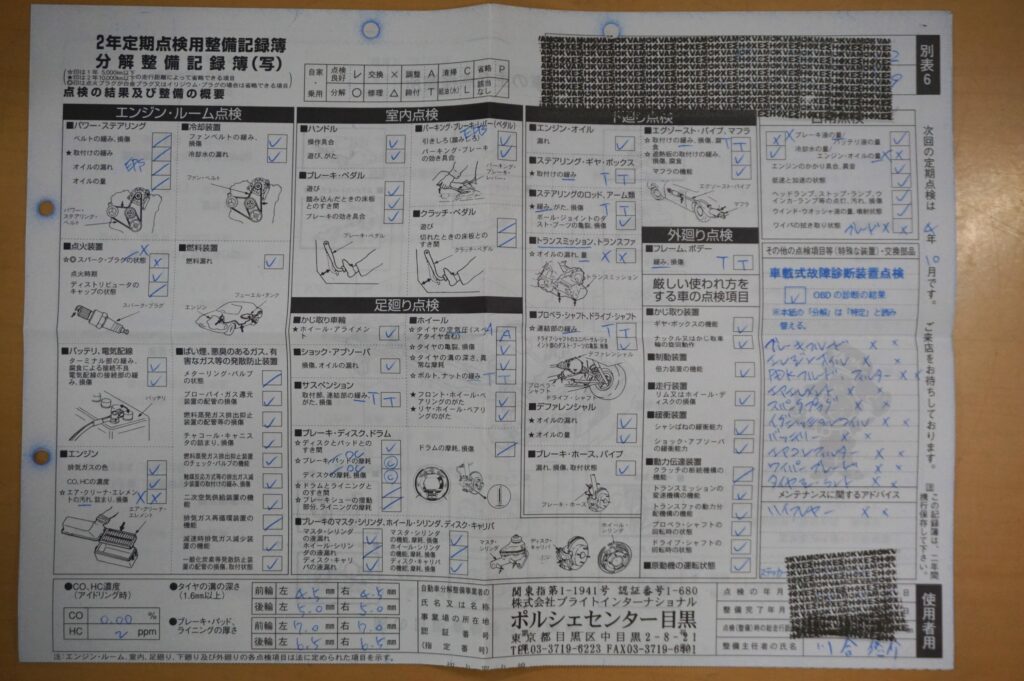 2年定期点検用整備記録簿
分解整備記録簿(写)
☆印は1年 5,000km以下
★印は2年10,000km以下の走行距離によって省略できる項目
◎印は点火プラグが白金プラグ又はイリジウム・プラグの場合は省略できる項目
点検の結果及び整備の概要
自家 点検良好 レ 交換 × 調整 A 清掃 C 省略 P
乗用 分解 ○ 修理 △ 締付 T 給油(水) L 該当なし ／
別表6
エンジン・ルーム点検
■パワー・ステアリング
ベルトの緩み、損傷
★取付けの緩み
オイルの漏れ
オイルの量
EPS
パワー・ステアリング・ベルト
■冷却装置
ファンベルトの緩み、損傷
冷却水の漏れ
ファン・ベルト
■点火装置
☆◎スパーク・プラグの状態
点火時期
ディストリビュータのキャップの状態
スパーク・プラグ
■燃料装置
燃料漏れ
フューエル・タンク
エンジン
■バッテリ、電気配線
ターミナル部の緩み、腐食による接続不良
電気配線の接続部の緩み、損傷
バッテリ
■エンジン
排気ガスの色
CO、HCの濃度
☆エア・クリーナ・エレメントの汚れ、詰まり、損傷
エア・クリーナ・エレメント
■ばい煙、悪臭のあるガス、有害なガス等の発散防止装置
メターリング・バルブの状態
ブローバイ・ガス還元装置の配管の損傷
燃料蒸発ガス排出抑止装置の配管等の損傷
チャコール・キャニスタの詰まり、損傷
燃料蒸発ガス排出抑止装置のチェック・バルブの機能
触媒反応方式等の排出ガス減少装置の取付けの緩み、損傷
二次空気供給装置の機能
排気ガス再循環装置の機能
減速時排気ガス減少装置の機能
一酸化炭素等発散防止装置の配管の損傷、取付状態
室内点検
■ハンドル
操作具合
遊び、がた
■ブレーキ・ペダル
遊び
踏み込んだときの床板とのすき間
ブレーキの効き具合
ブレーキ・ペダル
■パーキング・ブレーキ・レバー(ペダル)
引きしろ(踏みしろ)
パーキング・ブレーキの効き具合
パーキング・ブレーキ・レバー
■クラッチ・ペダル
遊び
切れたときの床板とのすき間
クラッチ・ペダル
足廻り点検
■かじ取り車輪
★ホイール・アライメント
■ショック・アブソーバ
損傷、オイルの漏れ
■サスペンション
取付部、連結部の緩み、がた、損傷
■ブレーキ・ディスク、ドラム
☆ディスクとパッドとのすき間
☆ブレーキパッドの摩耗
ディスクの摩耗、損傷
☆ドラムとライニングとのすき間
☆ブレーキシューの摺動部分、ライニングの摩耗
ドラムの摩耗、損傷
■ホイール
☆タイヤの空気圧(スペアタイヤ含む)
☆タイヤの亀裂、損傷
☆タイヤの溝の深さ、異常な摩耗
☆ボルト、ナットの緩み
☆フロント・ホイール・ベアリングのがた
★リヤ・ホイール・ベアリングのがた
■ブレーキのマスタ・シリンダ、ホイール・シリンダ、ディスク・キャリパ
マスタ・シリンダの液漏れ
ホイール・シリンダの液漏れ
ディスク・キャリパの液漏れ
マスタ・シリンダの機能、摩耗、損傷
ホイール・シリンダの機能、摩耗、損傷
ディスク・キャリパの機能、摩耗、損傷
マスタ・シリンダ
ディスク・キャリパ
ホイール・シリンダ
下廻り点検
■エンジン・オイル
漏れ
■ステアリング・ギヤ・ボックス
★取付けの緩み
■ステアリングのロッド、アーム類
★緩み、がた、損傷
ボール・ジョイントのダスト・ブーツの亀裂、損傷
■トランスミッション、トランスファ
☆オイルの漏れ、量
トランスミッション
■プロペラ・シャフト、ドライブ・シャフト
☆連結部の緩み
ドライブ・シャフトのユニバーサル・ジョイント部のダスト・ブーツの亀裂、損傷
デファレンシャル
プロペラ・シャフト
ドライブ・シャフト
■デファレンシャル
★オイルの漏れ
★オイルの量
■ブレーキ・ホース、パイプ
漏れ、損傷、取付状態
ブレーキ・ホース
■エグゾースト・パイプ、マフラ
★取付けの緩み、損傷、腐食
★遮熱板の取付けの緩み、損傷、腐食
マフラの機能
エグゾースト・パイプ
マフラ
外廻り点検
■フレーム、ボデー
緩み、損傷
厳しい使われ方をする車の点検項目
■かじ取り装置
ギヤ・ボックスの機能
ナックル又はかじ取車輪の復切動作
■制動装置
倍力装置の機能
■走行装置
リム又はホイール・ディスクの損傷
■緩衝装置
シャシばねの緩衝能力
ショック・アブソーバの緩衝能力
■動力伝達装置
クラッチの断続機構の機能
トランスミッションの変速機構の機能
トランスファの動力分配機構の機能
プロペラ・シャフトの回転時の状態
ドライブ・シャフトの回転時の状態
■原動機の運転状態
日常点検
ブレーキ液の量
バッテリ液の量
冷却水の量
エンジン・オイルの量
エンジンのかかり具合、異音
低速と加速の状態
ヘッドランプ、ストップ・ランプ、ウインカ・ランプ等の点灯、汚れ、損傷
ウインド・ウオッシャ液の量、噴射状態
ワイパの拭き取り状態
その他の点検項目等(特殊な装置)・交換部品
車載式故障診断装置点検
OBDの診断の結果
※本紙の「分解」は「特定」と読み替える。
ブレーキフルード
エンジンオイル
PDKフルード、フィルター × ×
オイルエレメント × ×
スパークプラグ × ×
イグニッションコイル × ×
バッテリー × ×
エアコンフィルター × ×
ワイパーブレード × ×
メンテナンスに関するアドバイス
次回の定期点検は 年10月です。
ご来店をお待ちしております。
この記録簿は、二年間携行保存して下さい。
使用者用
●CO、HC濃度(アイドリング時)
CO 0.00 %
HC 2 ppm
●タイヤの溝の深さ(1.6mm以上)
前輪 左 4.5 mm 右 4.5 mm
後輪 左 5.0 mm 右 5.0 mm
●ブレーキ・パッド、ライニングの厚さ
前輪 左 7.0 mm 右 7.0 mm
後輪 左 6.5 mm 右 6.5 mm
自動車分解整備事業者の氏名又は名称
事業場の所在地
認証番号
(指定番号)
関東指第1-1941号 認証番号1-680
株式会社ブライトインターナショナル
ポルシェセンター目黒
東京都目黒区中目黒2-8-21
TEL03-3719-6223 FAX03-3719-6801
点検の年月
整備完了年月
点検(整備)時の総走行距
整備主任者の氏名
注：エンジン・ルーム、室内、足廻り、下廻り及び外廻りの各点検項目は法に定められた項目を示す。